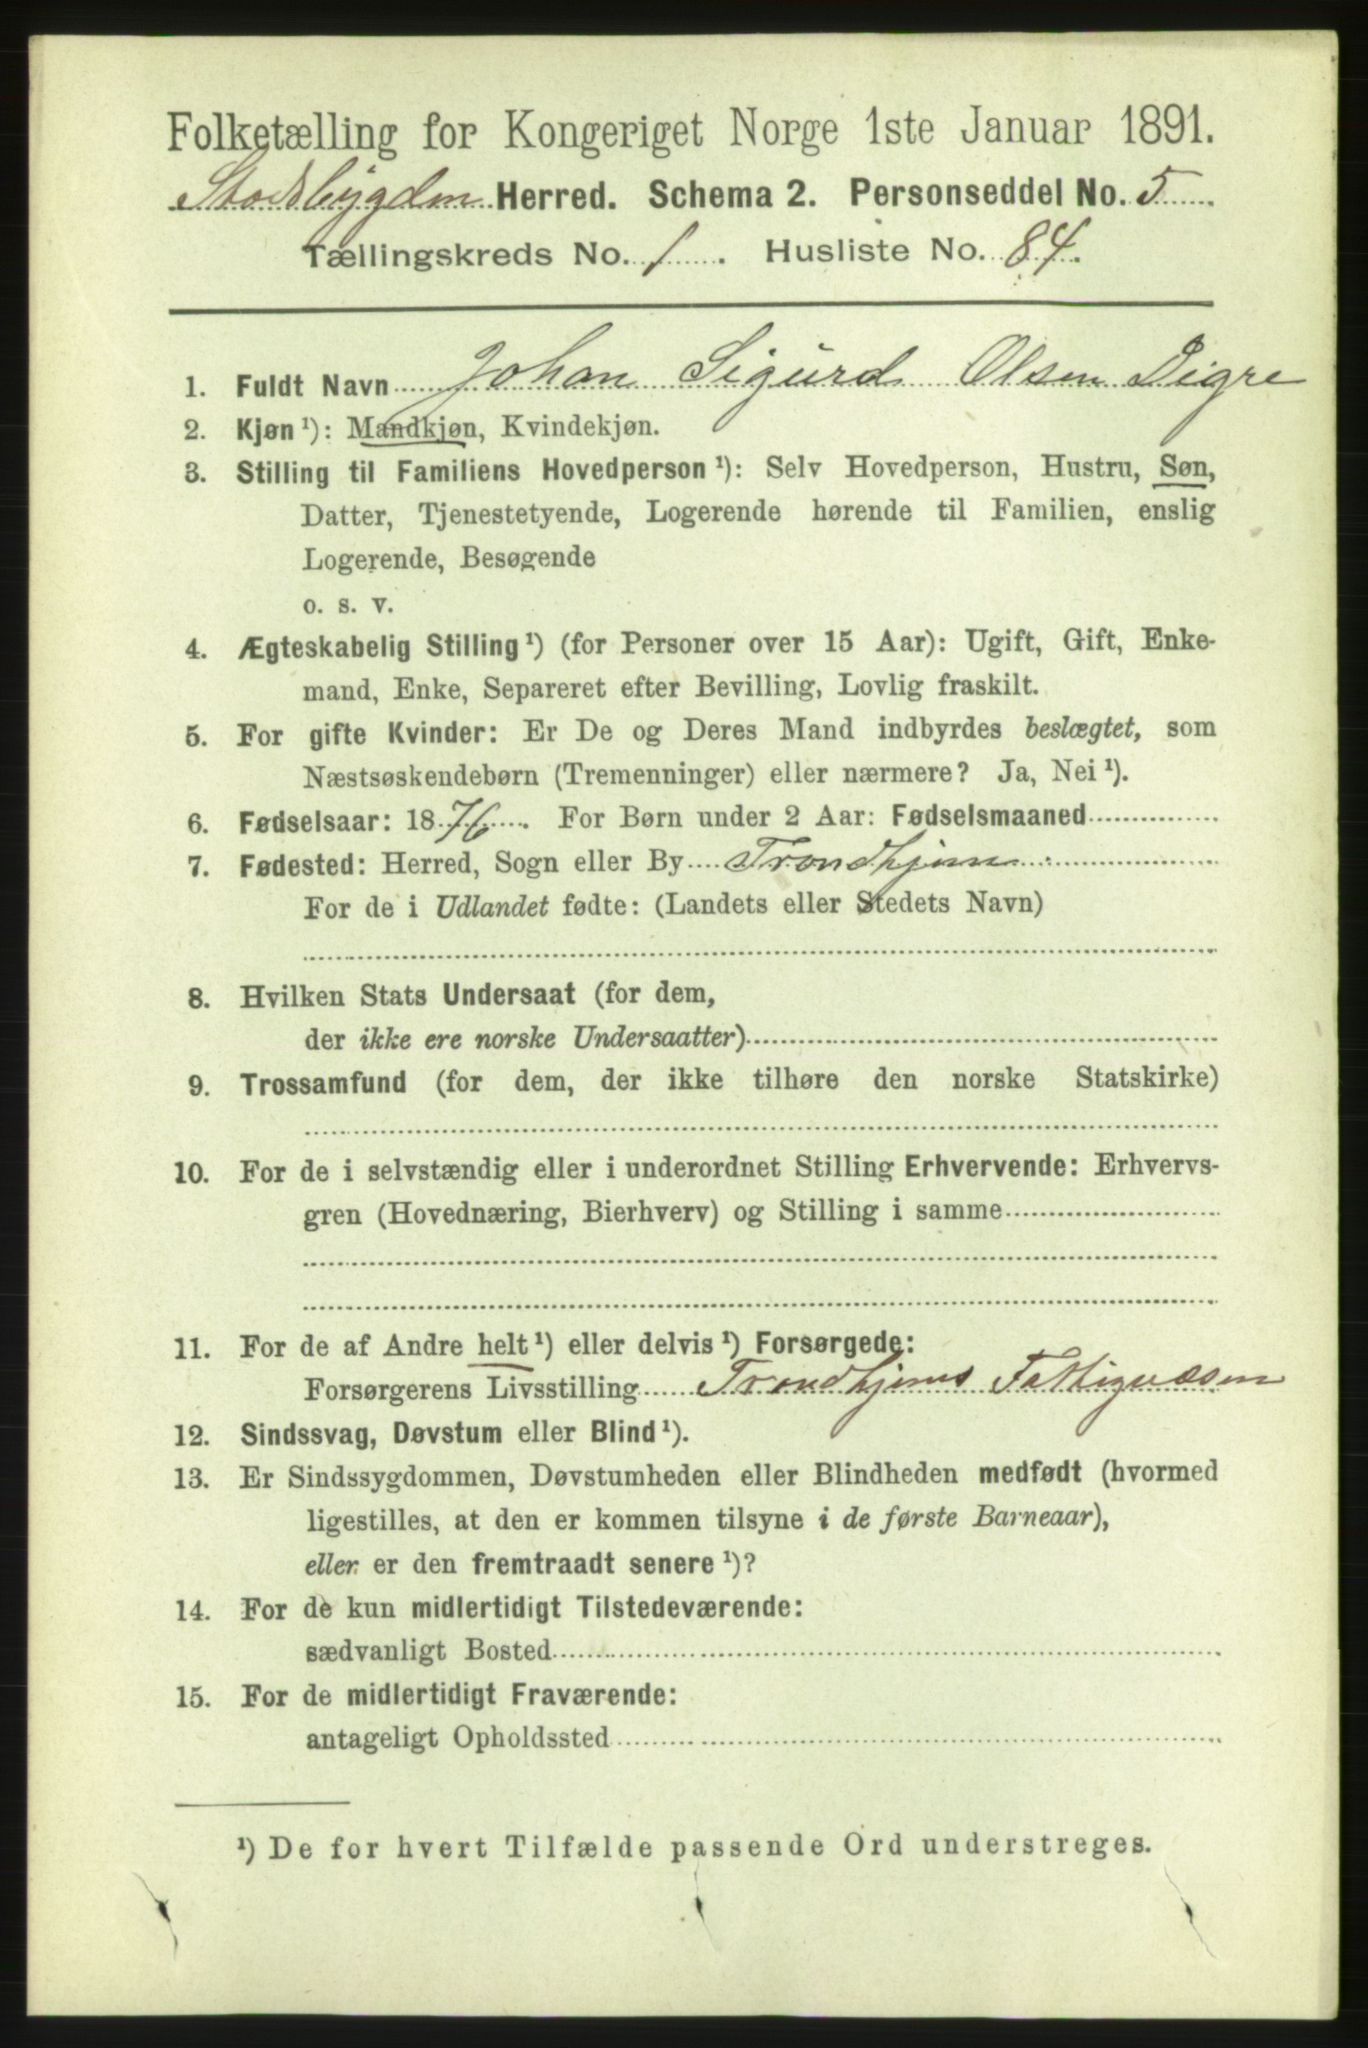 Folketælling for Kongeriget Norge 1ste Januar 1891.
Stadsbygden Herred. Schema 2. Personseddel No. 5
Tællingskreds No. 1. Husliste No. 84.
1. Fuldt Navn Johan Sigurd Olsen Digre
2. Kjøn ¹): Mandkjøn, Kvindekjøn.
3. Stilling til Familiens Hovedperson ¹): Selv Hovedperson, Hustru, Søn,
Datter, Tjenestetyende, Logerende hørende til Familien, enslig
Logerende, Besøgende
o. s. v.
4. Ægteskabelig Stilling ¹) (for Personer over 15 Aar): Ugift, Gift, Enke-
mand, Enke, Separeret efter Bevilling, Lovlig fraskilt.
5. For gifte Kvinder: Er De og Deres Mand indbyrdes beslægtet, som
Næstsøskendebørn (Tremenninger) eller nærmere? Ja, Nei ¹).
6. Fødselsaar: 1876. For Børn under 2 Aar: Fødselsmaaned
7. Fødested: Herred, Sogn eller By Trondhjem
For de i Udlandet fødte: (Landets eller Stedets Navn)
8. Hvilken Stats Undersaat (for dem,
der ikke ere norske Undersaatter)
9. Trossamfund (for dem, der ikke tilhøre den norske Statskirke)
10. For de i selvstændig eller i underordnet Stilling Erhvervende: Erhvervs-
gren (Hovednæring, Bierhverv) og Stilling i samme
11. For de af Andre helt ¹) eller delvis ¹) Forsørgede:
Forsørgerens Livsstilling Trondhjems Fattigvæsen
12. Sindssvag, Døvstum eller Blind ¹).
13. Er Sindssygdommen, Døvstumheden eller Blindheden medfødt (hvormed
ligestilles, at den er kommen tilsyne i de første Barneaar),
eller er den fremtraadt senere ¹)?
14. For de kun midlertidigt Tilstedeværende:
sædvanligt Bosted
15. For de midlertidigt Fraværende:
antageligt Opholdssted
¹) De for hvert Tilfælde passende Ord understreges.